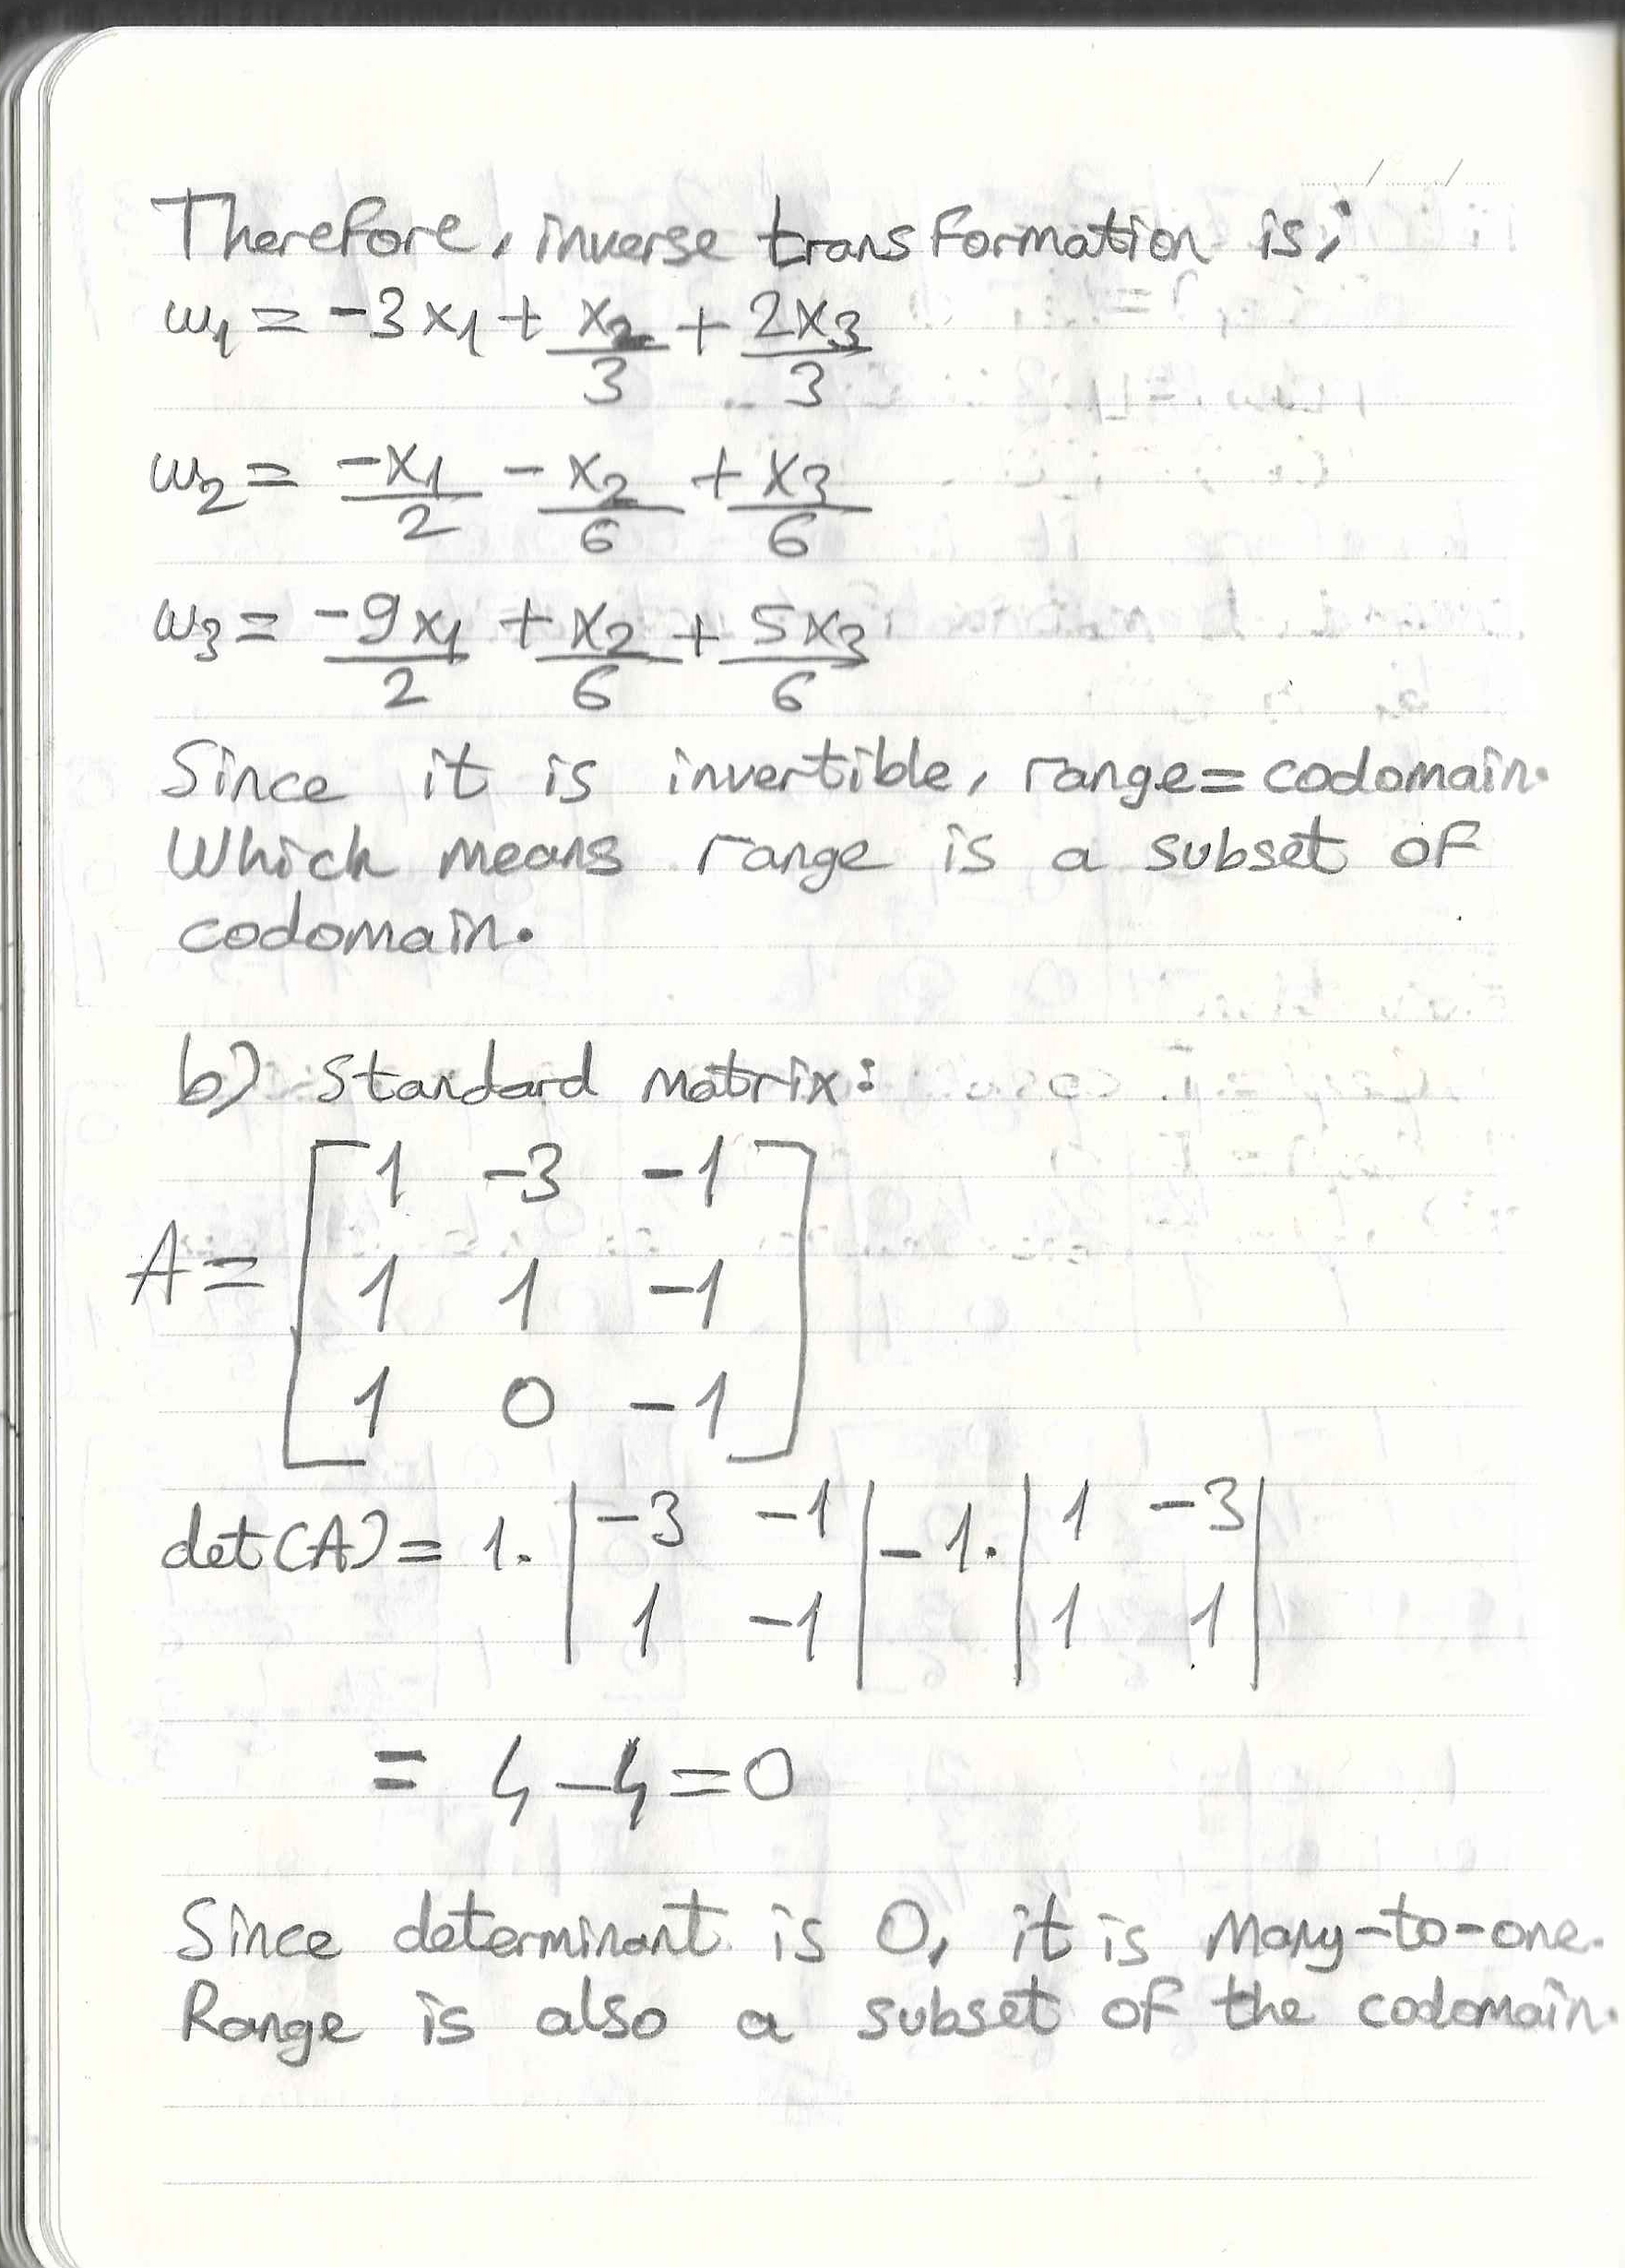 Therefore, inverse transformation is;
w₁ = -3x₁ + x₂/3 + 2x₃/3
w₂ = -x₁/2 - x₂/6 + x₃/6
w₃ = -9x₁/2 + x₂/6 + 5x₃/6
Since it is invertible, range = codomain.
Which means range is a subset of
codomain.
b) Standard matrix:
A = [1 -3 -1
1 1 -1
1 0 -1]
det(A) = 1. |-3 -1| - 1. |1 -3|
|1 -1| |1 1|
= 4 - 4 = 0
Since determinant is 0, it is many-to-one.
Range is also a subset of the codomain.